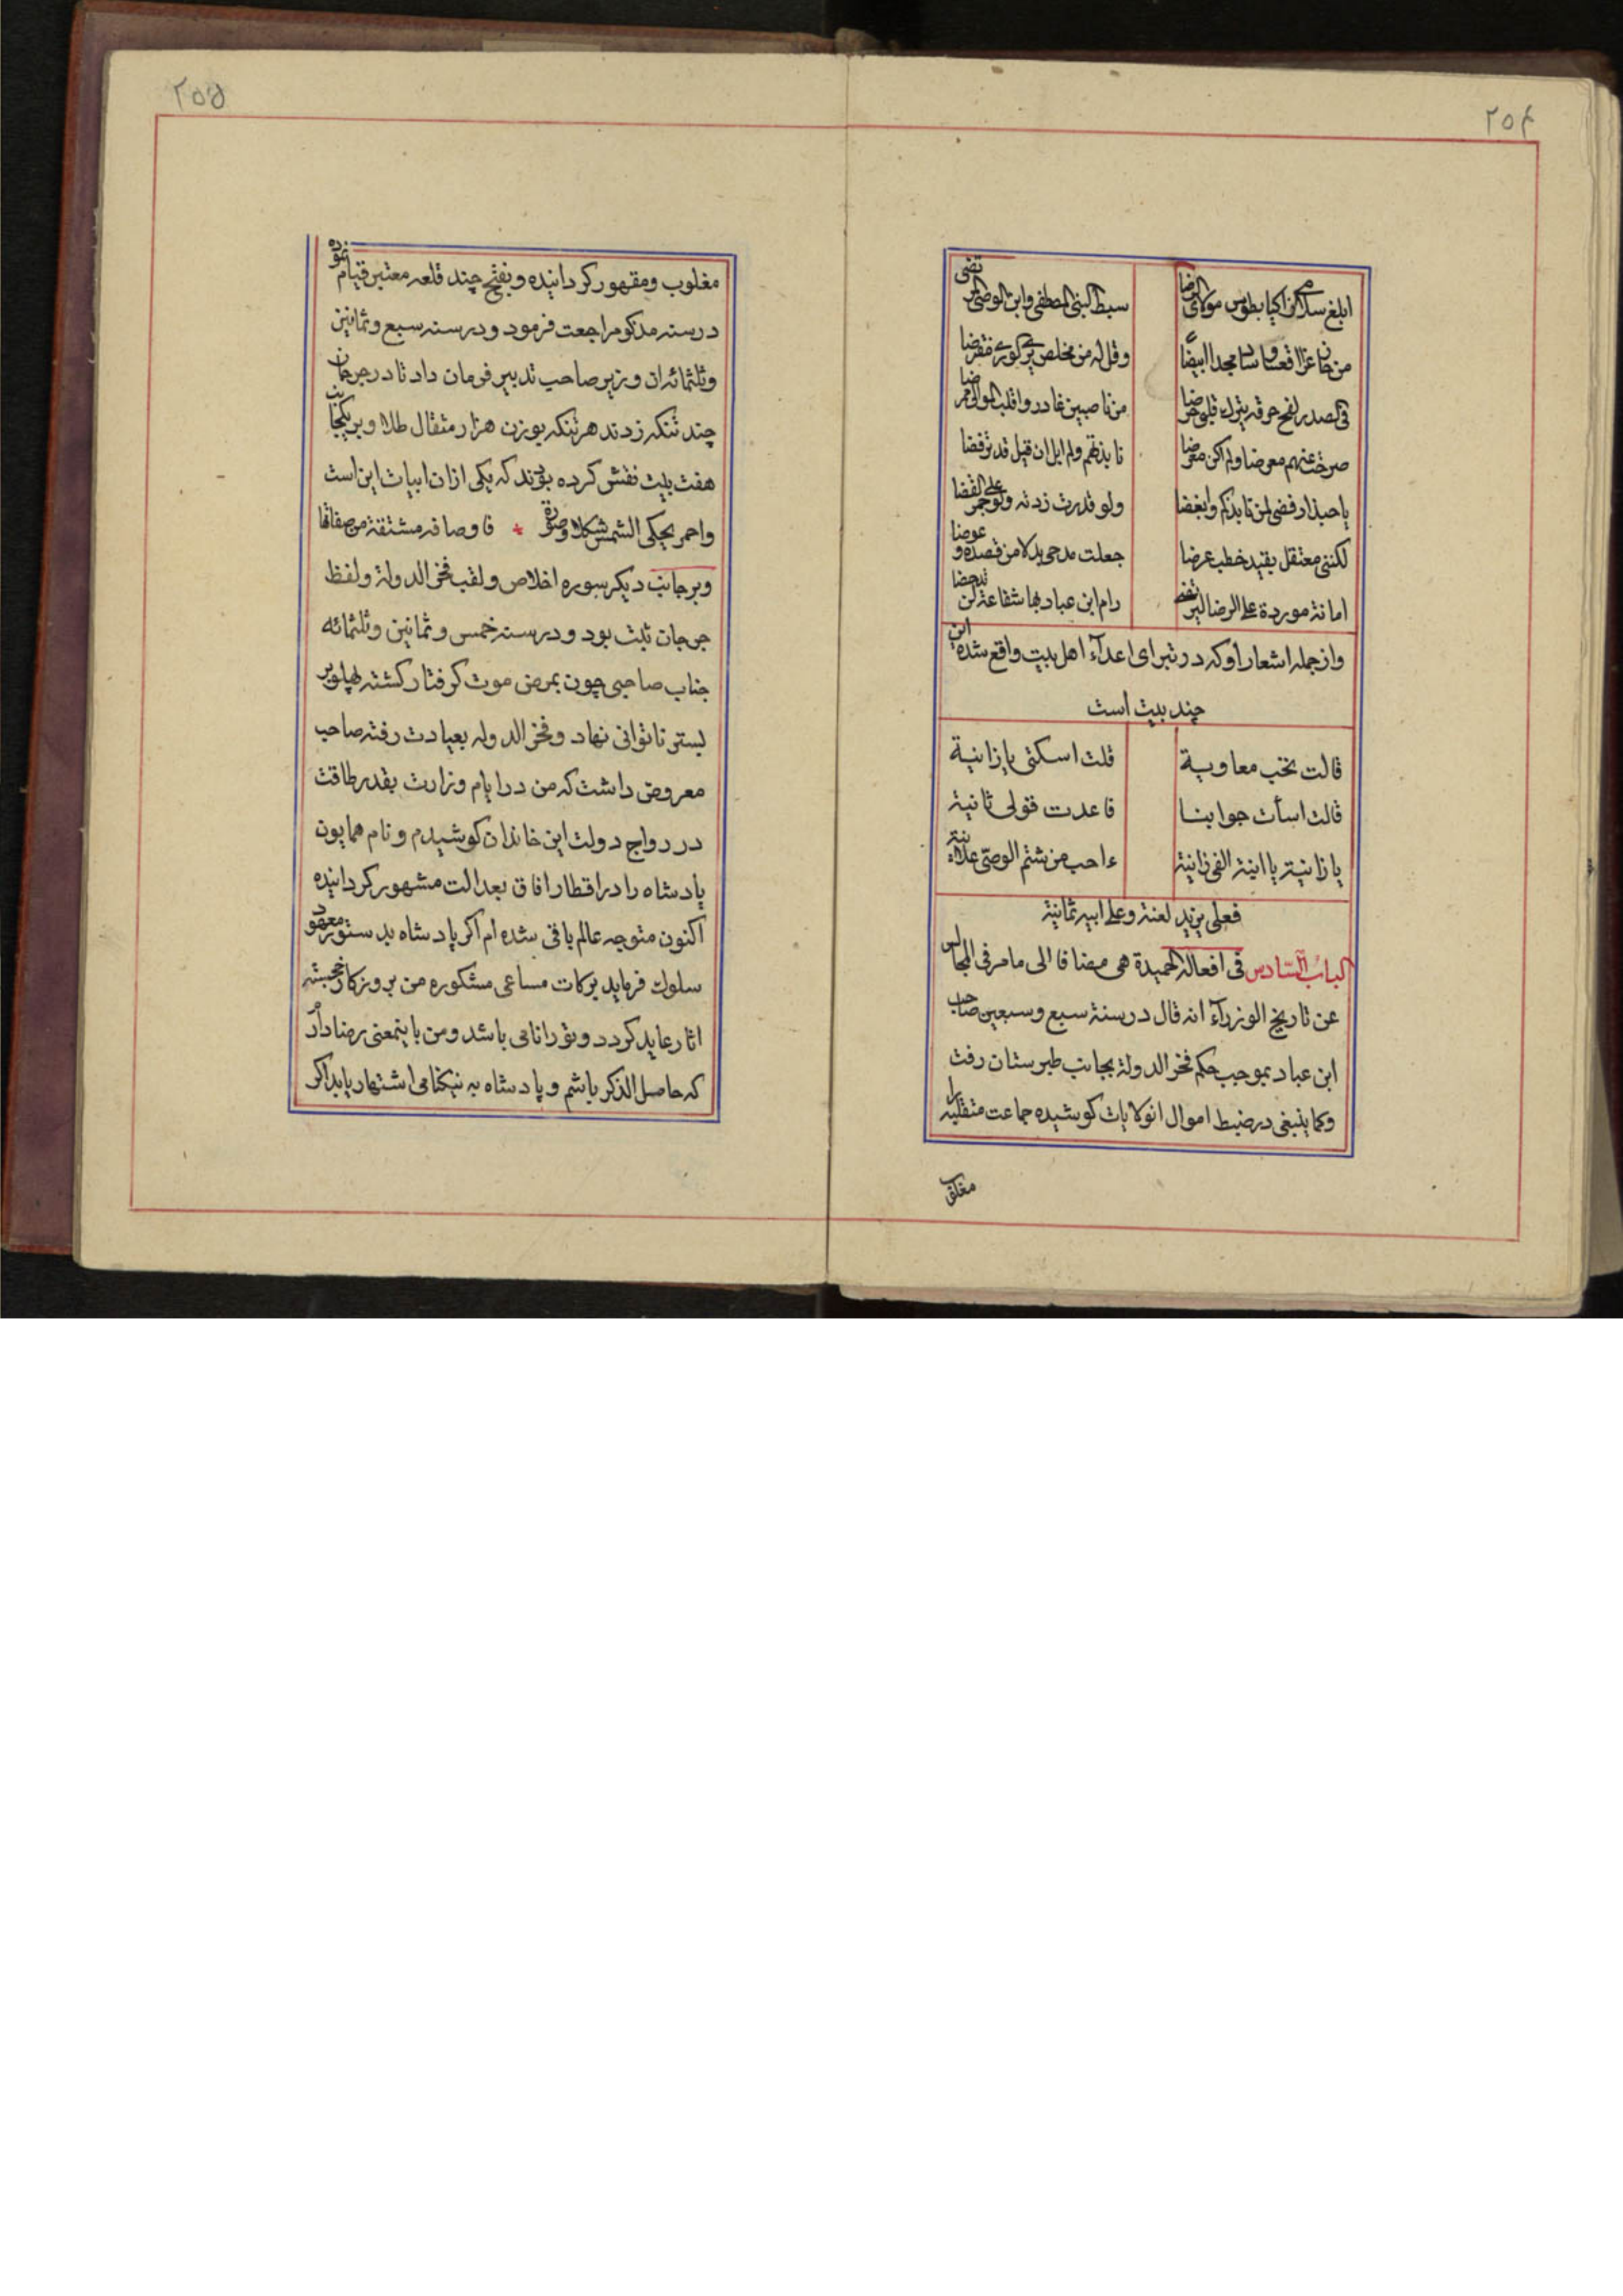 ٢٥۴
ابلغ سلامی زاکیا بطوس مولای الرضا سبط النبی المصطفی وابن الوصی المرتضی
من حاز عزا اقعسا وشاد مجدا ابیضا وقل له من مخلص یری الولا مفترضا
فی الصدر لفح حرقة یترک قلبی حرضا من ناصبین غادروا قلب الموالی ممرضا
صرحت عنهم معرضا ولم اکن معرضا نابذتهم ولم ابل ان قیل قد ترفضا
یا حبذا رفضی لمن نابذکم وابغضا ولو قدرت زدته ولو علی جمر الغضا
لکننی معتقل بقید خطب عرضا جعلت مدحی بدلا من قصده وعوضا
امانة موردة علی الرضا لیرتضی رام ابن عباد بها شفاعة لن تدحضا
واز جمله اشعار او که در تبرای اعدآء اهل بیت واقع شده این
چند بیت است
قالت تحب معاویة قلت اسکتی یا زانیة
قالت اسأت جوابنا فاعدت قولی ثانیة
یا زانیة یا ابنة الفی زانیة ءاحب من شتم الوصی علانیة
فعلی یزید لعنة وعلی ابیه ثمانیة
الباب السّادس فی افعاله الحمیدة هی مضافا الی ما مر فی المجالس
عن تاریخ الوزرآء انه قال در سنة سبع وسبعین صاحب
ابن عباد بموجب حکم فخر الدولة بجانب طبرستان رفت
وکما ینبغی در ضبط اموال انولایات کوشیده جماعت متقلبه را
مغلوب
٢٥۵
مغلوب ومقهور کردانیده وبفتح چند قلعه معتبر قیام نموده
در سنه مذکور مراجعت فرمود ودر سنه سبع وثمانین
وثلثمائه ان وزیر صاحب تدبیر فرمان داد تا در جرجان
چند تنکه زدند هر تنکه بوزن هزار مثقال طلا وبر یکجانب
هفت بیت نقش کرده بودند که یکی ازان ابیات این است
واحمر یحکی الشمس شکلا وصورة * فاوصافه مشتقة من صفاتها
وبر جانب دیکر سوره اخلاص ولقب فخر الدولة ولفظ
جرجان ثبت بود ودر سنه خمس وثمانین وثلثمائه
جناب صاحبی چون بمرض موت کرفتار کشته پهلو بر
بستر ناتوانی نهاد وفخر الدوله بعیادت رفته صاحب
معروض داشت که من در ایام وزارت بقدر طاقت
در رواج دولت این خاندان کوشیدم ونام همایون
پادشاه را در اقطار افاق بعدالت مشهور کردانیده
اکنون متوجه عالم باقی شده ام اکر پادشاه بدستور معهود
سلوک فرماید برکات مساعی مشکوره من بروزکار خجسته
اثار عاید کردد ونورانامی باشد ومن باینمعنی رضا دارم
که حاصل الذکر باشم وپادشاه به نیکنامی اشتهار یابد اکر